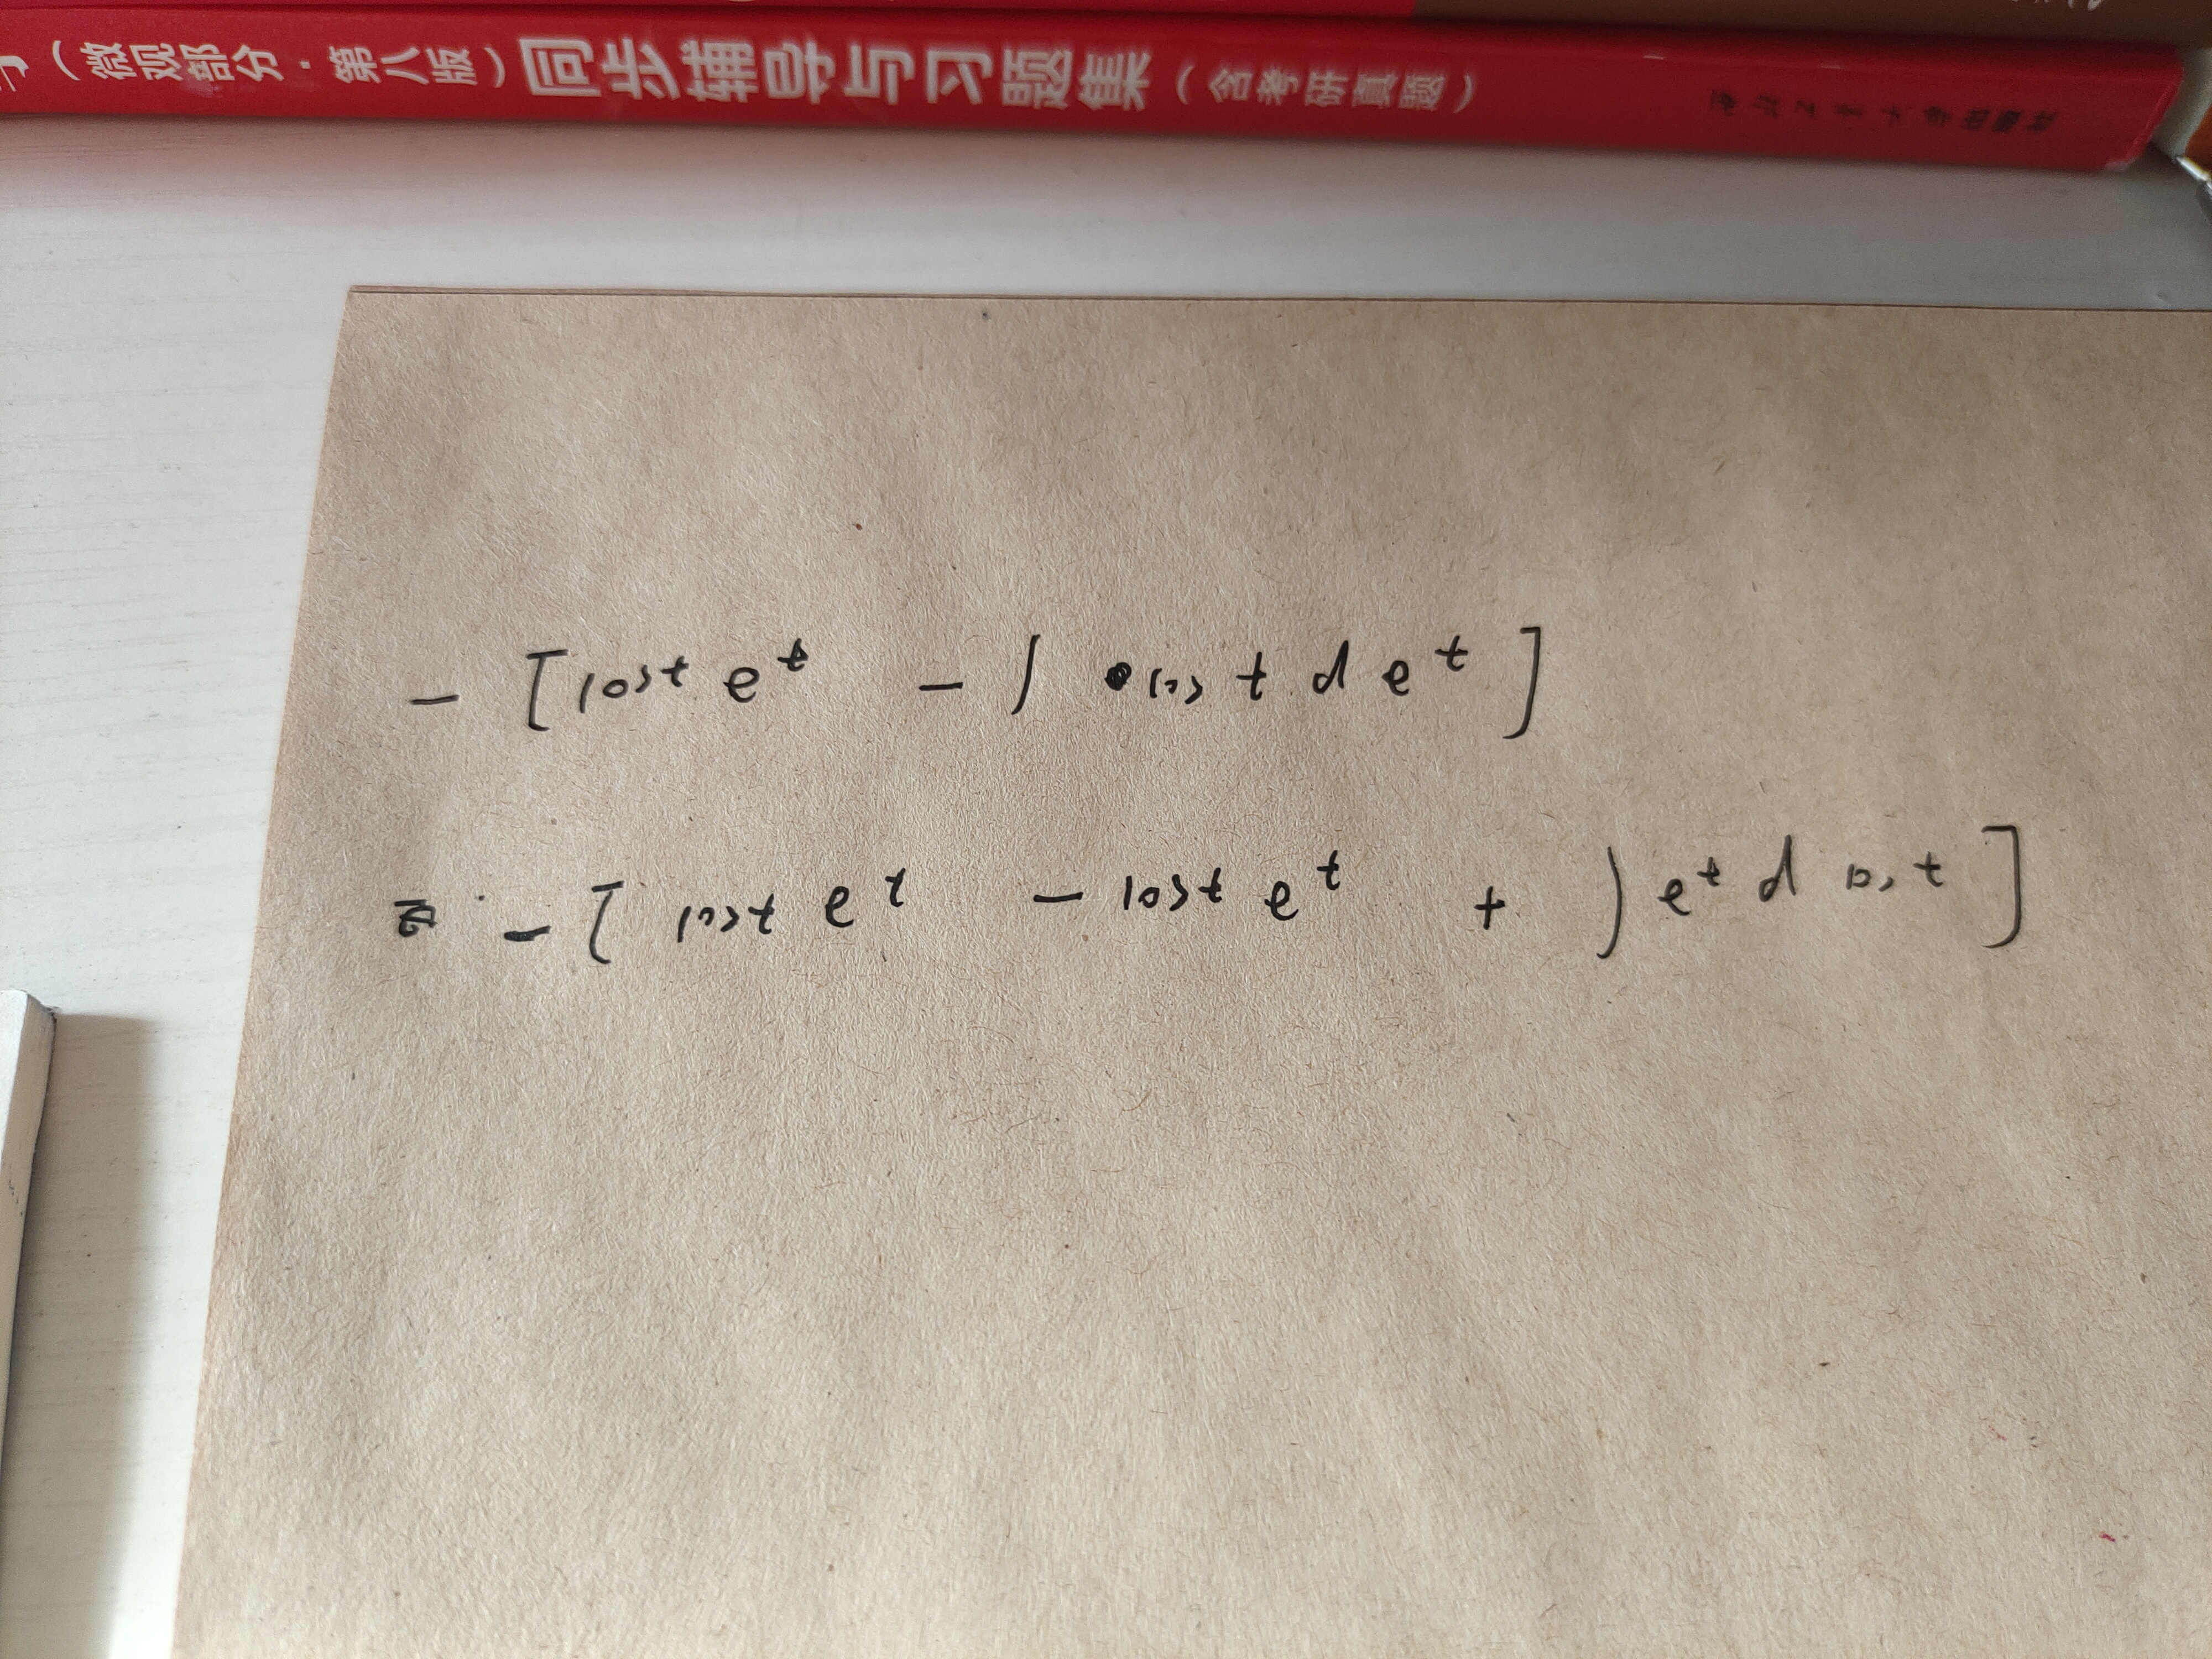 (微观部分·第八版)同步辅导与习题集(含考研真题)
- [cost e^t - ∫ cos t d e^t ]
= - [ cost e^t - cost e^t + ∫ e^t d cos t ]